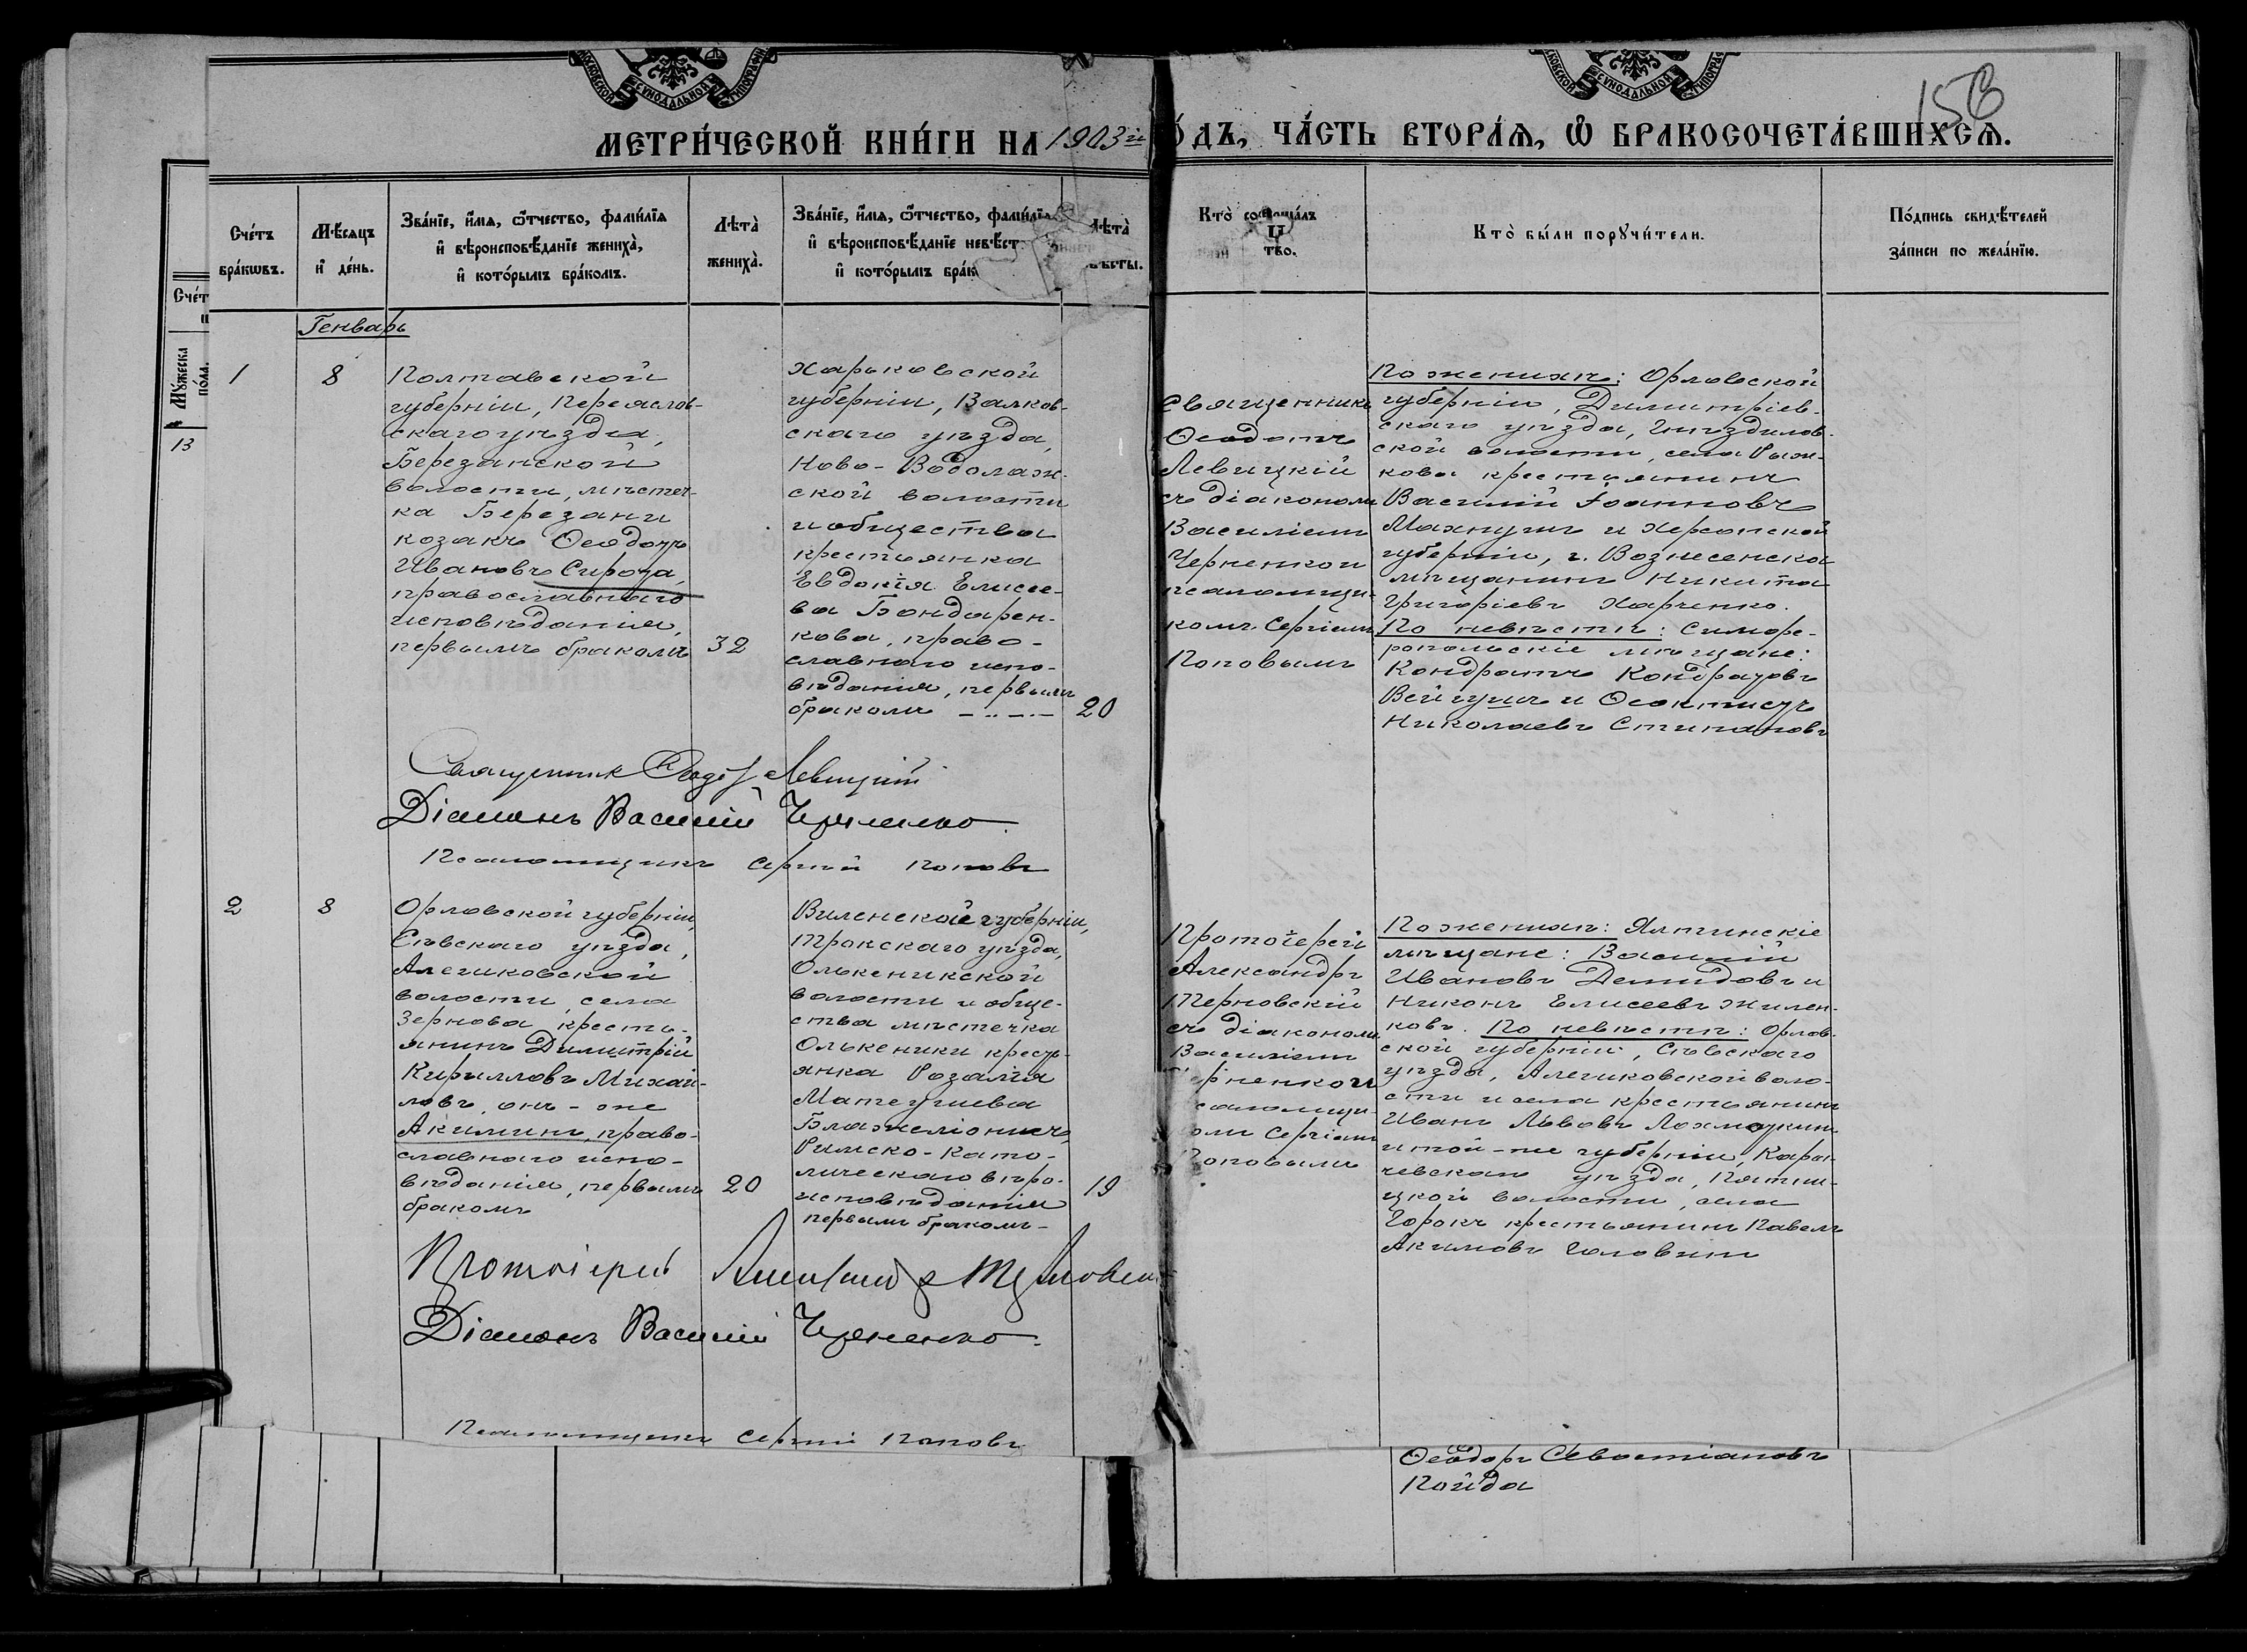 МОСКОВСКОЙ СѴНОДАЛЬНОЙ ТИПОГРАФ
МОСКОВСКОЙ СѴНОДАЛЬНОЙ ТИПОГРАФ
МЕТРИ́ЧЕСКОЙ КНИ́ГИ НА 1903й
О́ДЪ, ЧА́СТЬ ВТОРА́Ѧ, Ѡ҆ БРАКОСОЧЕТА́ВШИХСѦ.
Сче́тъ
бра́кωвъ.
Мѣ́сѧцъ
и҆ де́нь.
Зва́нїе, и҆́мѧ, ѻ҆́тчество, фами́лїѧ
и҆ вѣроисповѣ́данїе жениха̀,
и҆ кото́рымъ бра́комъ.
Лѣта̀
жениха̀.
Зва́нїе, и҆́мѧ, ѻ҆́тчество, фами́лїѧ
и҆ вѣроисповѣ́данїе невѣ́ст
и҆ кото́рымъ бра́к
Лѣта̀
вѣсты.
Кто̀ соверша́лъ
тво.
Кто̀ бы́ли порꙋчи́тели.
По́дпись свидѣ́телей
за́писи по жела́нїю.
Сче́т
Мꙋ́жеска
по́ла.
13
Генварь
1
8
Полтавской
губерніи, Переяслов-
скаго уѣзда,
Березанской
волости, мѣстеч-
ка Березани
козакъ Ѳеодотъ
Ивановъ Сирота,
православнаго
исповѣданія,
первымъ бракомъ
32
Харьковской
губерніи, Валков-
скаго уѣзда,
Ново-Водолаж-
ской волости
и общества
крестьянка
Евдокія Елисее-
ва Бондарен-
кова, право-
славнаго испо-
вѣданія, первымъ
бракомъ
20
Священникъ
Ѳеодотъ
Левицкій
съ діакономъ
Василіемъ
Черненкои
псаломщи-
комъ Сергіемъ
Поповымъ
По женихѣ: Орловской
губерніи, Димитріев-
скаго уѣзда, Гнѣздилов-
ской волости, села Рыж-
кова крестьянинъ
Василій Іоанновъ
и Херсонской
губерніи, г. Вознесенска
мѣщанинъ Никита
Григоріевъ Харченко.
По невѣстѣ: Симфе-
ропольскіе мѣщане:
Кондратъ Кондратовъ
и Ѳеоктистъ
Николаевъ Стипановъ
Священник Ѳеодот Левицкій
Діаконъ Василій Черненко.
Псаломщикъ Сергій Поповъ
2
8
Орловской губерніи,
Сѣвскаго уѣзда,
Алешковской
волости, села
Зернова кресть-
янинъ Димитрій
Кирилловъ Михай-
ловъ, онъ-же
Акимин, право-
славнаго испо-
вѣданія, первымъ
бракомъ
20
Виленской губерніи,
Трокскаго уѣзда,
Олькеникской
волости и обще-
ства мѣстечка
Олькеники кресть-
янка Розалія
Матеушева
Блажеліонисъ,
Римско-Като-
лическаго вѣро-
исповѣданія
первымъ бракомъ-
19
Протоіерей
Александръ
Терновскій
съ діакономъ
Василіемъ
ерненкои
саломщи-
омъ Сергіемъ
оповымъ
По женихѣ: Ялтинскіе
мѣщане: Василій
Ивановъ Демидовъ и
Никонъ Елисеевъ Жилен-
ковъ. По невѣстѣ: Орлов-
ской губерніи, Сѣвскаго
уѣзда, Алешковской воло-
сти и села крестьянинъ
Иванъ Львовъ Лохмоткин
и той-же губерніи, Кара-
чевскаго уѣзда, Пятни-
цкой волости, села
Горокъ крестьянинъ Павелъ
Акимовъ Головин
Протоіерей Александр Терновск
Діаконъ Василій Черненко.
Псаломщикъ Сергій Поповъ
Ѳеодоръ Севастіановъ
Койда